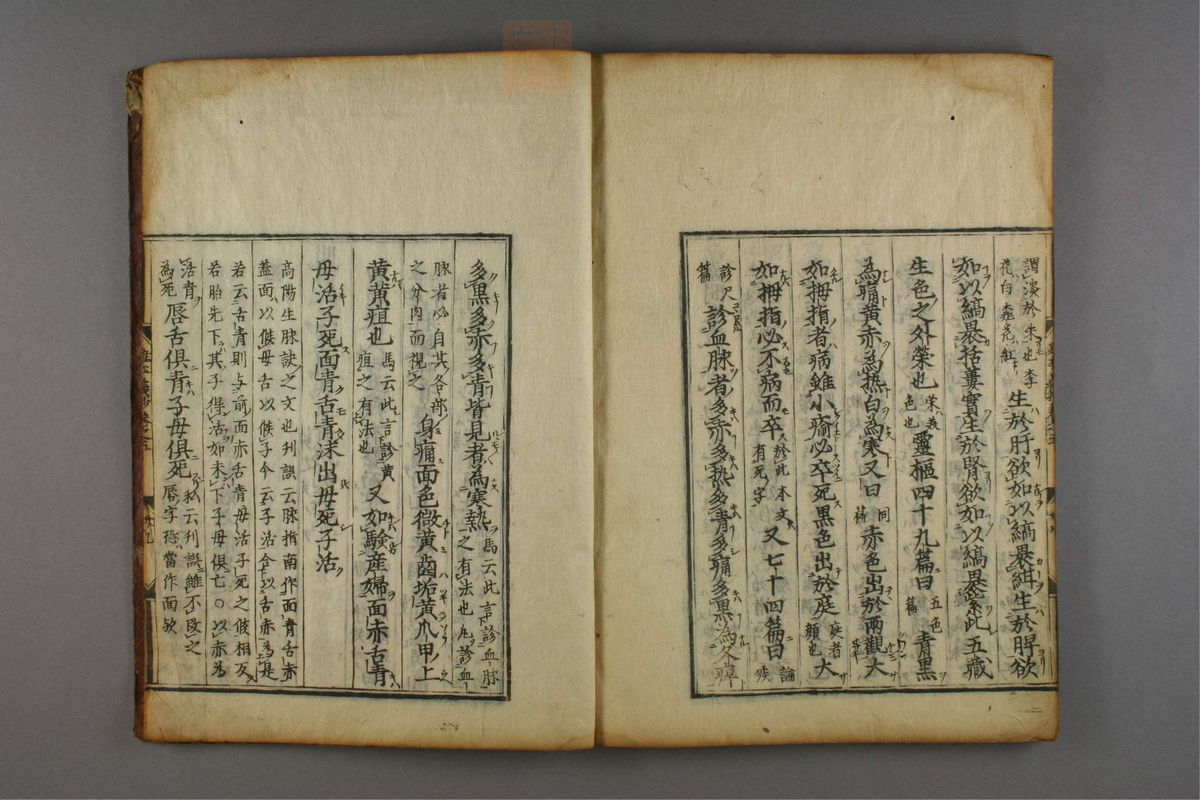 謂淡於朱也李
花白桃花紅　生於肝欲如以縞裹紺生於脾欲
如以縞裹括蔞實生於腎欲如以縞裹紫此五臓
生色之外榮也榮義色也靈樞四十九篇曰五色篇青黑
為痛黄赤為熱白為寒又曰同篇赤色出於兩顴大
如拇指者病雖小瘉必卒死黒色出於庭庭者顔也大
如拇指必不病而卒於此本文有死字又七十四篇曰論疾
診尺篇診血脉者多赤多熱多青多痛多黒為久痺
多黒多赤多青皆見者為寒熱馬云此言診血脉之有法也凡診血
脉者必自其各部之分肉而視之身痛面色微黄齒垢黄爪甲上
黄黄疸也馬云此言診黄疸之有法也又如驗産婦面赤舌青
母活子死面青舌青沫出母死子活
高陽生脉訣之文也刋誤云脉指南作面青舌赤
蓋面以候母舌以候子今云子活合以舌赤為是
若云舌青則与前面赤舌青母活子死之候相反
若胎先下其子得活如未下子母俱亡○以赤為
活青為死唇舌俱青子母俱死 云刋誤雖不改之唇字恐當作面欤